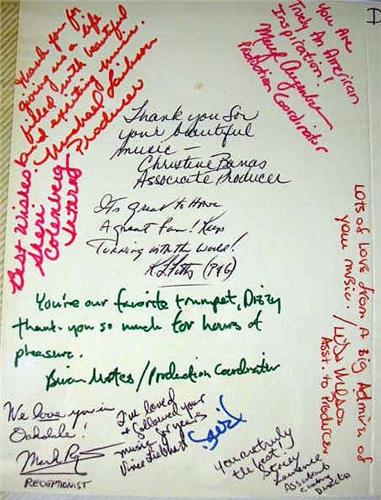 Thank you for
giving us a life
filled with beautiful
and exciting music.
Michael
Producer
You Are
Truly An American
Inspiration!
Production Coordinator
Best Wishes
Sheri
Thank you for
your beautiful
music —
Christine Banas
Associate Producer
It's great to Have
A great Fan! Keep
Turning with the World!
You're our favorite trumpet, Dizzy
thank-you so much for hours of
pleasure.
Brian Mates / Production Coordinator
Lots of Love from A Big Admirer of
your music. / Wilson
Asst. to Producer
We love you in
Oakdale!
Mark
RECEPTIONIST
I've loved
& followed your
music for years
You are truly
the best!
Stacey